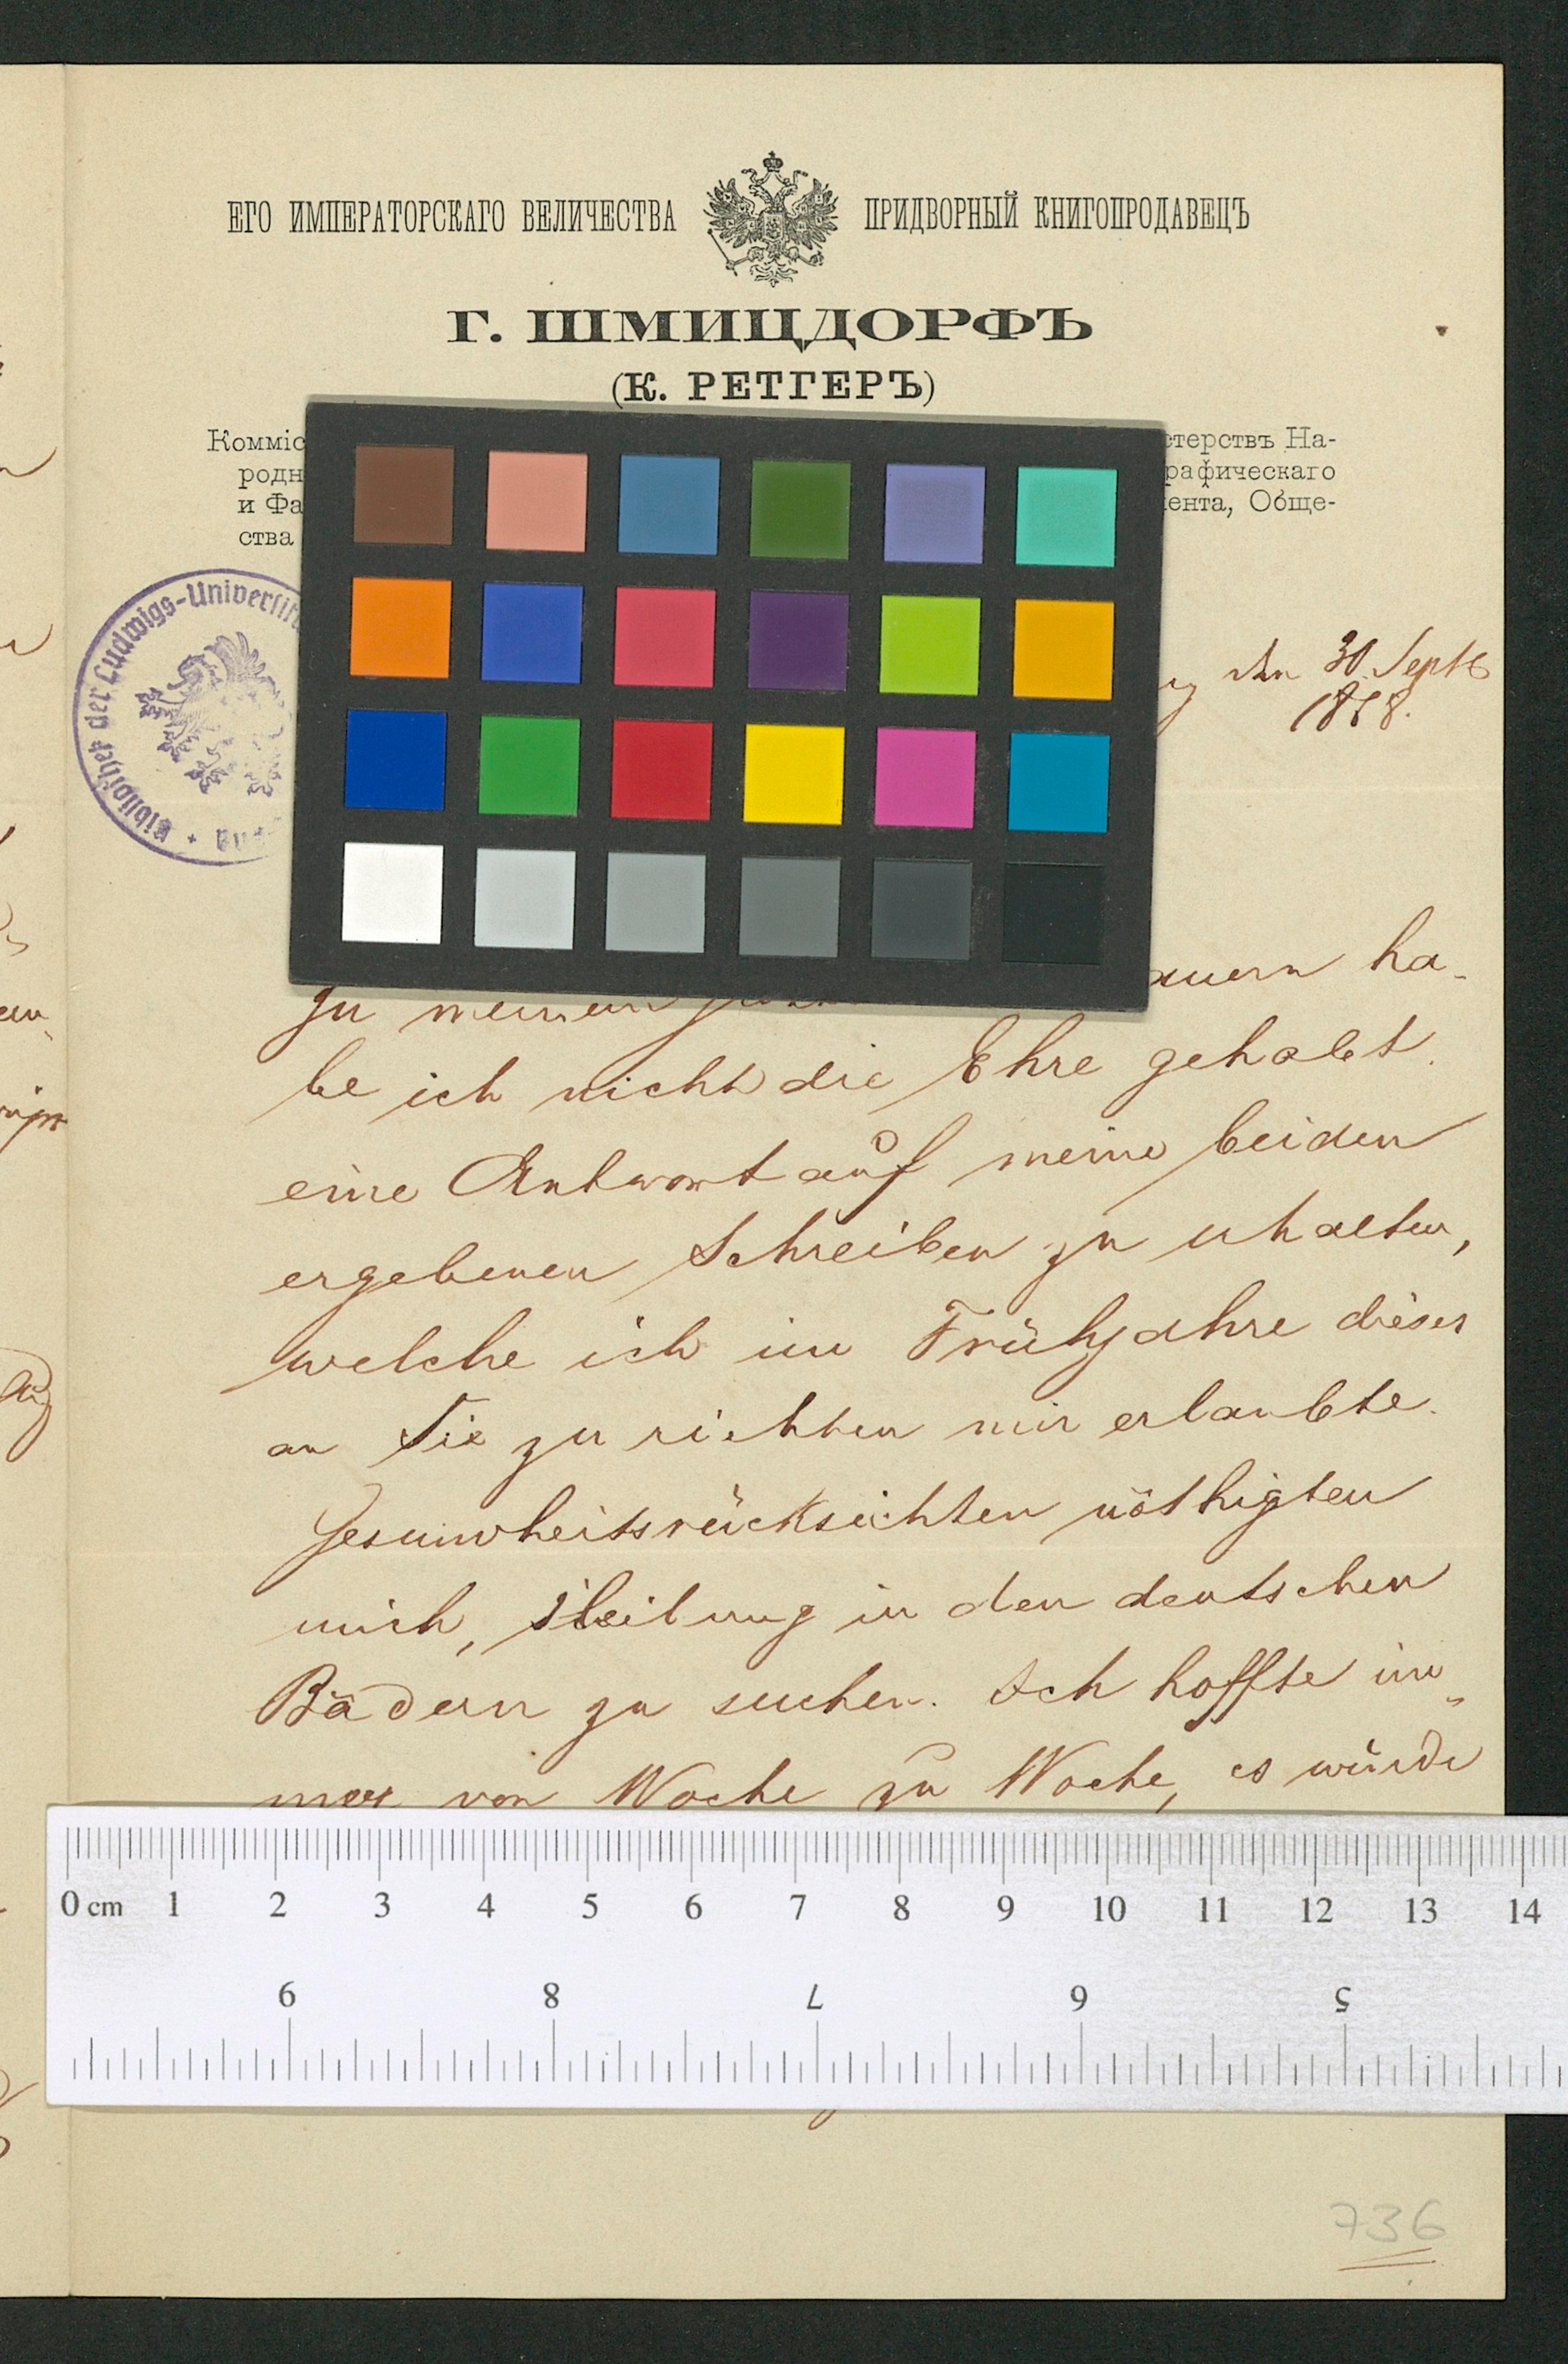 ЕГО ИМПЕРАТОРСКАГО ВЕЛИЧЕСТВА ПРИДВОРНЫЙ КНИГОПРОДАВЕЦЪ
Г. ШМИЦДОРФЪ
(К. РЕТГЕРЪ)
Комміс стерствъ На-
родн рафическаго
и Фа ента, Обще-
ства
Bibliothek der Ludwigs-Universit
den 30. Septb
18 8.
zu meinem auern ha-
be ich nicht die Ehre gehabt
eine Antwort auf meine beiden
ergebenen Schreiben zu erhalten,
welche ich im Frühjahre dieses
an Sie zu richten mir erlaubte.
Gesundheitsrücksichten nöthigten
mich, Heilung in den deutschen
Bädern zu suchen. Ich hoffte im-
mer von Woche zu Woche, es würde
0 cm 1 2 3 4 5 6 7 8 9 10 11 12 13 14
9 8 7 6 5
736